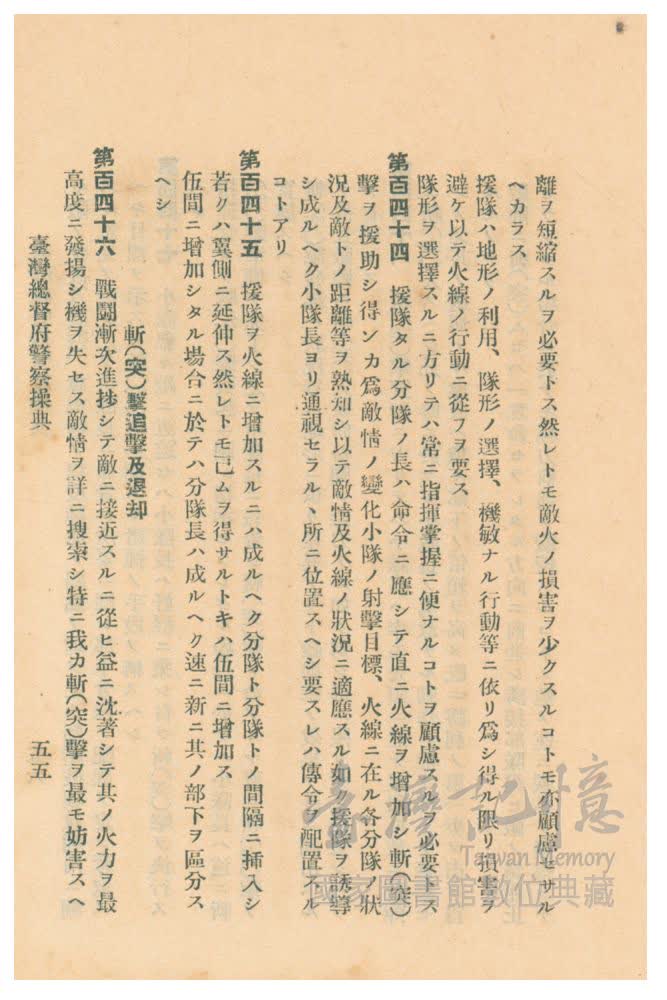 離ヲ短縮スルヲ必要トス然レトモ敵火ノ損害ヲ少クスルコトモ亦顧慮セサル
ヘカラス
援隊ハ地形ノ利用、隊形ノ選擇、機敏ナル行動等ニ依リ爲シ得ル限リ損害ヲ
避ケ以テ火線ノ行動ニ從フヲ要ス
隊形ヲ選擇スルニ方リテハ常ニ指揮掌握ニ便ナルコトヲ顧慮スルヲ必要トス
第百四十四　援隊タル分隊ノ長ハ命令ニ應シテ直ニ火線ヲ增加シ斬(突)
擊ヲ援助シ得ンカ爲敵情ノ變化小隊ノ射擊目標、火線ニ在ル各分隊ノ狀
況及敵トノ距離等ヲ熟知シ以テ敵情及火線ノ狀況ニ適應スル如ク援隊ヲ誘導
シ成ルヘク小隊長ヨリ通視セラルヽ所ニ位置スヘシ要スレハ傳令ヲ配置スル
コトアリ
第百四十五　援隊ヲ火線ニ增加スルニハ成ルヘク分隊ト分隊トノ間隔ニ插入シ
若クハ翼側ニ延伸ス然レトモ已ムヲ得サルトキハ伍間ニ增加ス
伍間ニ增加シタル場合ニ於テハ分隊長ハ成ルヘク速ニ新ニ其ノ部下ヲ區分ス
ヘシ
斬(突)擊追擊及退却
第百四十六　戰鬪漸次進捗シテ敵ニ接近スルニ從ヒ益ニ沈著シテ其ノ火力ヲ最
高度ニ發揚シ機ヲ失セス敵情ヲ詳ニ搜索シ特ニ我カ斬(突)擊ヲ最モ妨害スヘ
臺灣總督府警察操典
五五
臺灣記憶
Taiwan Memory
國家圖書館數位典藏